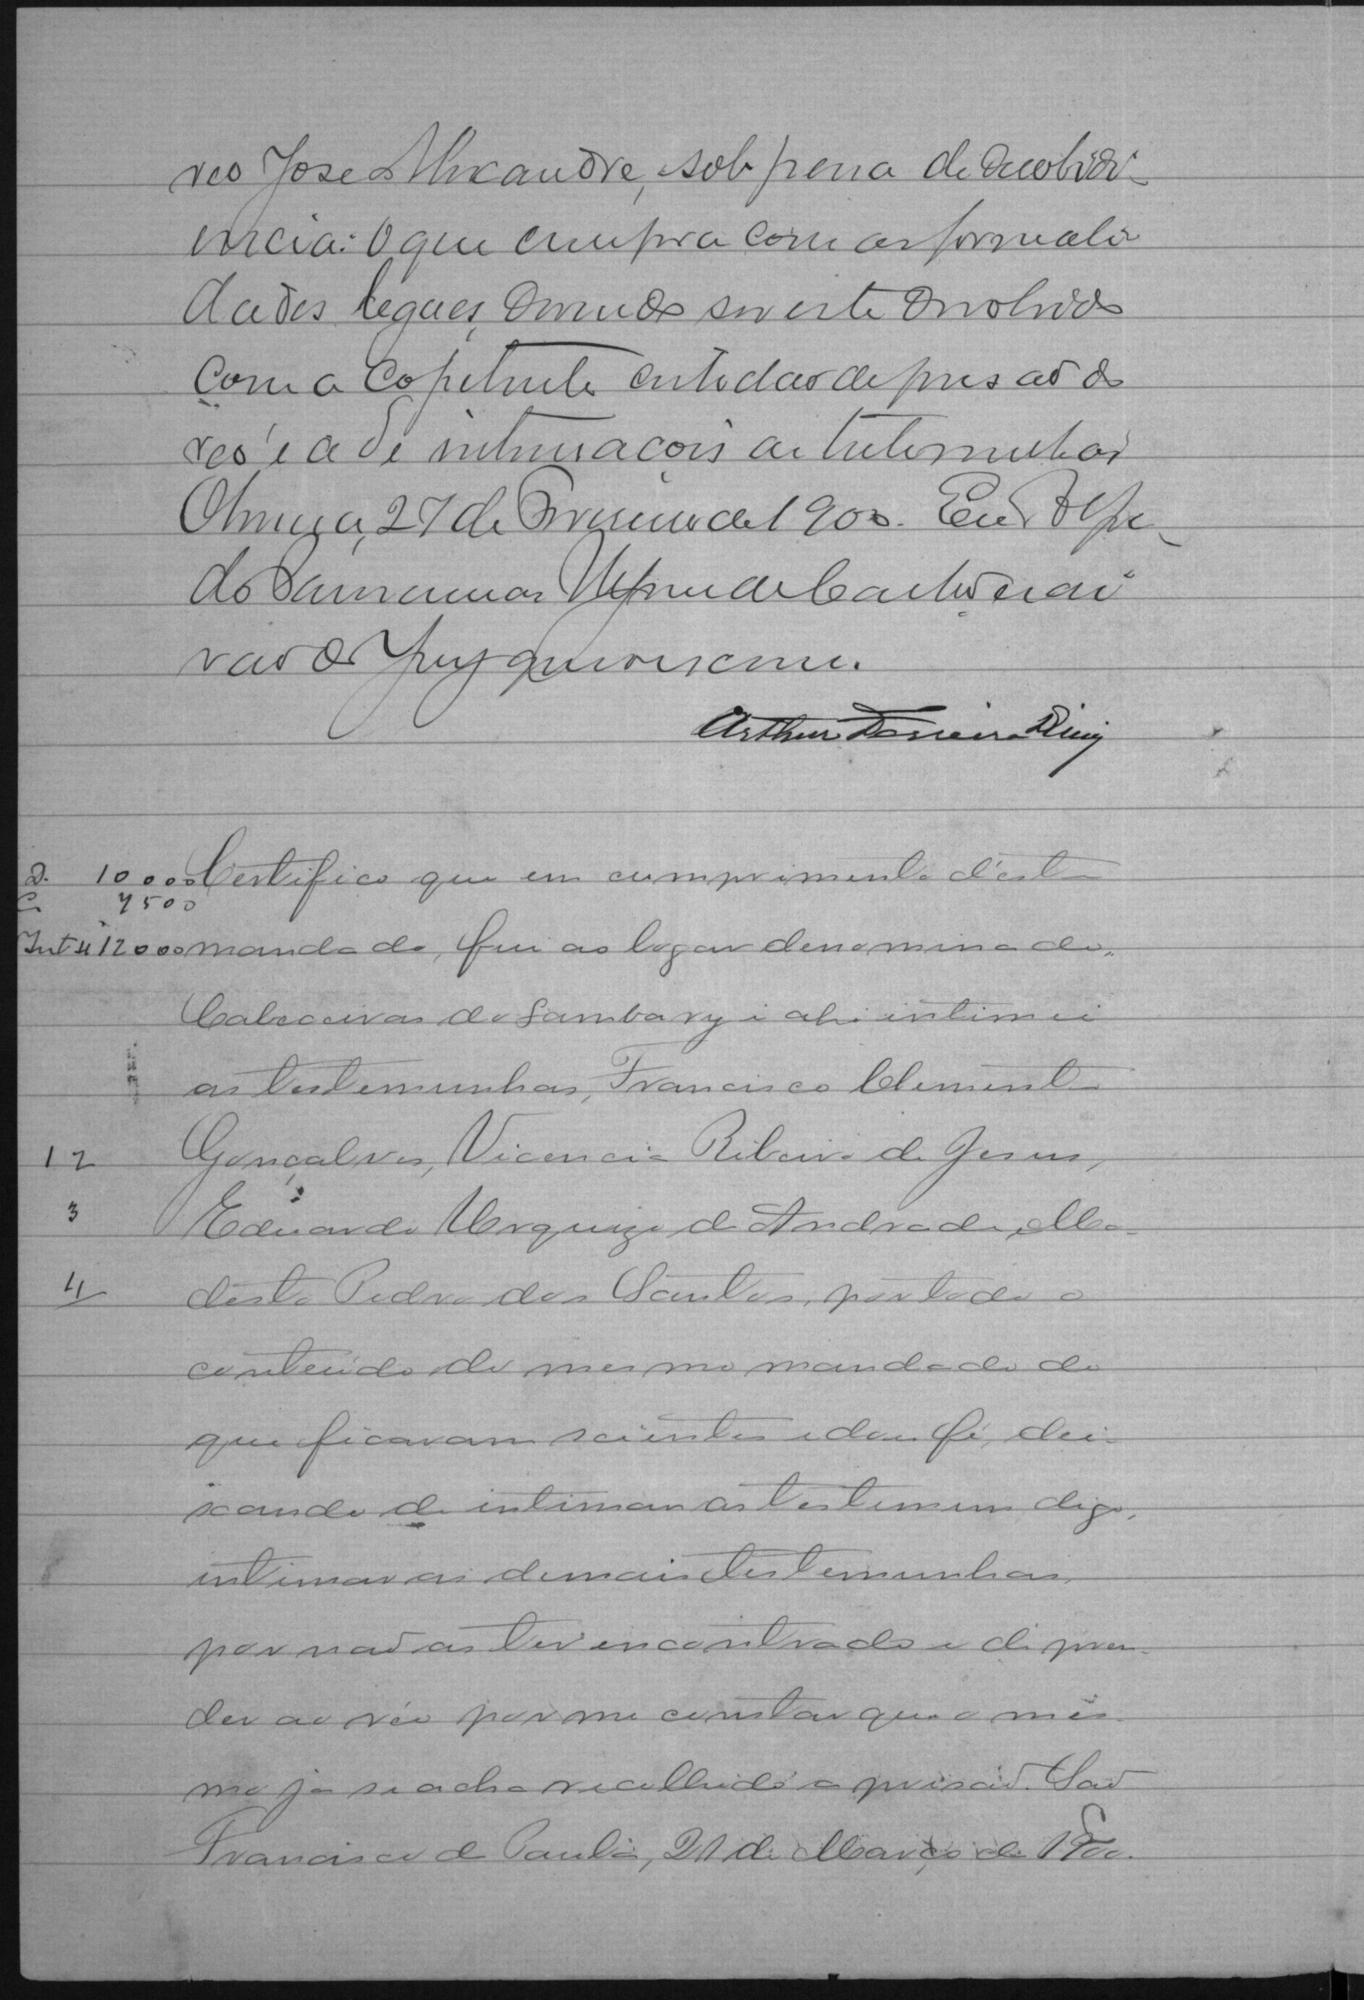 reo Jose Alexandre, sob pena de desobidi-
encia: O que cumpra com as formali
dades legaes, devendo ser este devolvido
com a copetente certidao de prisao do
reo e a de intimacois as testemunhas
27 de Fevereiro de 1900. Eu
de Castro escri
vao do Jury que o escrevi.
Arthur Diniz
D. 10000 Certifico que em cumprimento d'este
C. 7500
Int 4 12000 mandado, fui ao logar denominado,
Cabeceiras do Sambary e ahi intimei
as testemunhas, Francisco Clemente
12 Gonçalves, Vicencia Ribeiro de Jesus,
3 Eduardo Urquiza de Andrade, Mo-
4 desto Pedro dos Santos, por todo o
conteúdo do mesmo mandado do
que ficaram scientes e dou fé, dei-
xando de intimar as testemun digo,
intimar as demais testemunhas,
por não as ter encontrado e di pren-
der ao réo por me constar que o mes-
mo já se acha recolhido a prisão. São
Francisco de Paula, 21 de Março de 1900.